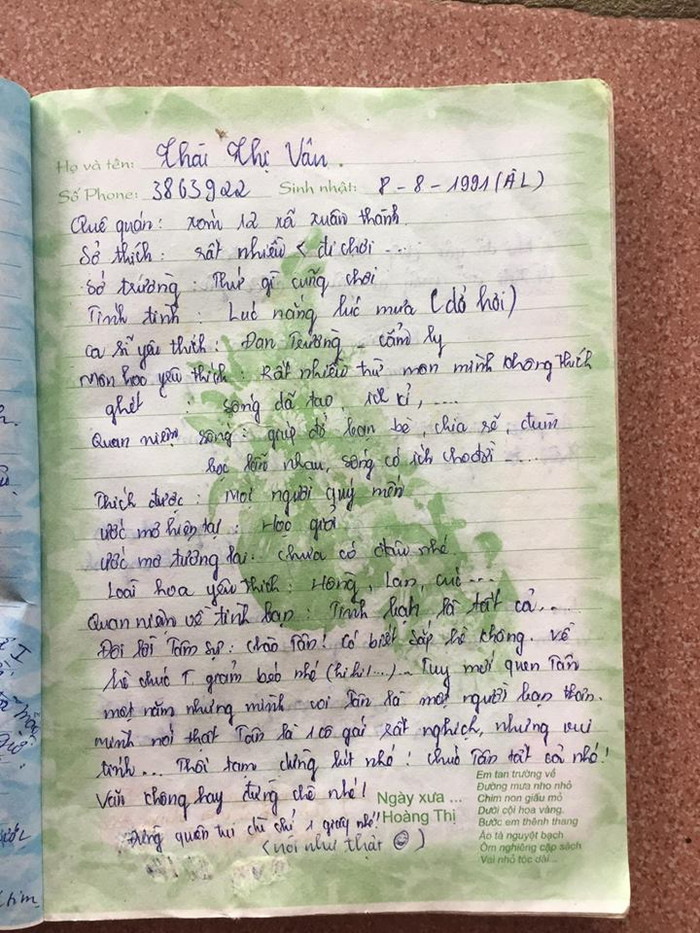 Họ và tên: Thái Thị Vân.
Số Phone: 3863922 Sinh nhật: 8 - 8 - 1991 (ÂL)
Quê quán: xóm 12 xã xuân thành
Sở thích: rất nhiều < đi chơi ...
Sở trường: Thứ gì cũng chơi
Tính tình: Lúc nắng lúc mưa (dở hơi)
Ca sĩ yêu thích: Đan Trường - cẩm ly
Môn học yêu thích: Rất nhiều trừ môn mình không thích
ghét: sống dã tạo, ích kỉ, ....
Quan niệm sống: giúp đỡ bạn bè, chia sẻ, đùm
bọc lẫn nhau, sống có ích cho đời ....
Thích được: Mọi người quý mến
ước mơ hiện tại: Học giỏi
ước mơ tương lai: chưa có đâu nhé
Loài hoa yêu thích: Hồng, Lan, cúc ...
Quan niệm về tình bạn: Tình bạn là tất cả ...
Đôi lời Tâm sự: chào Tân! Có biết sắp hè không. Về
hè chúc T giảm béo nhé (hi hi!...)... Tuy mới quen Tân
một năm nhưng mình coi Tân là một người bạn thân.
mình nói thật Tân là 1 cô gái rất nghịch, nhưng vui
tính... Thôi tạm dừng bút nhé! chúc Tân tất cả nhé!
Văn chông hay đừng chê nhé!
Đừng quên tui chỉ 1 giây nhé!
(nói như thật ☺)
Ngày xưa ...
Hoàng Thị
Em tan trường về
Đường mưa nho nhỏ
Chim non giấu mỏ
Dưới cội hoa vàng.
Bước em thênh thang
Áo tà nguyệt bạch
Ôm nghiêng cặp sách
Vai nhỏ tóc dài...